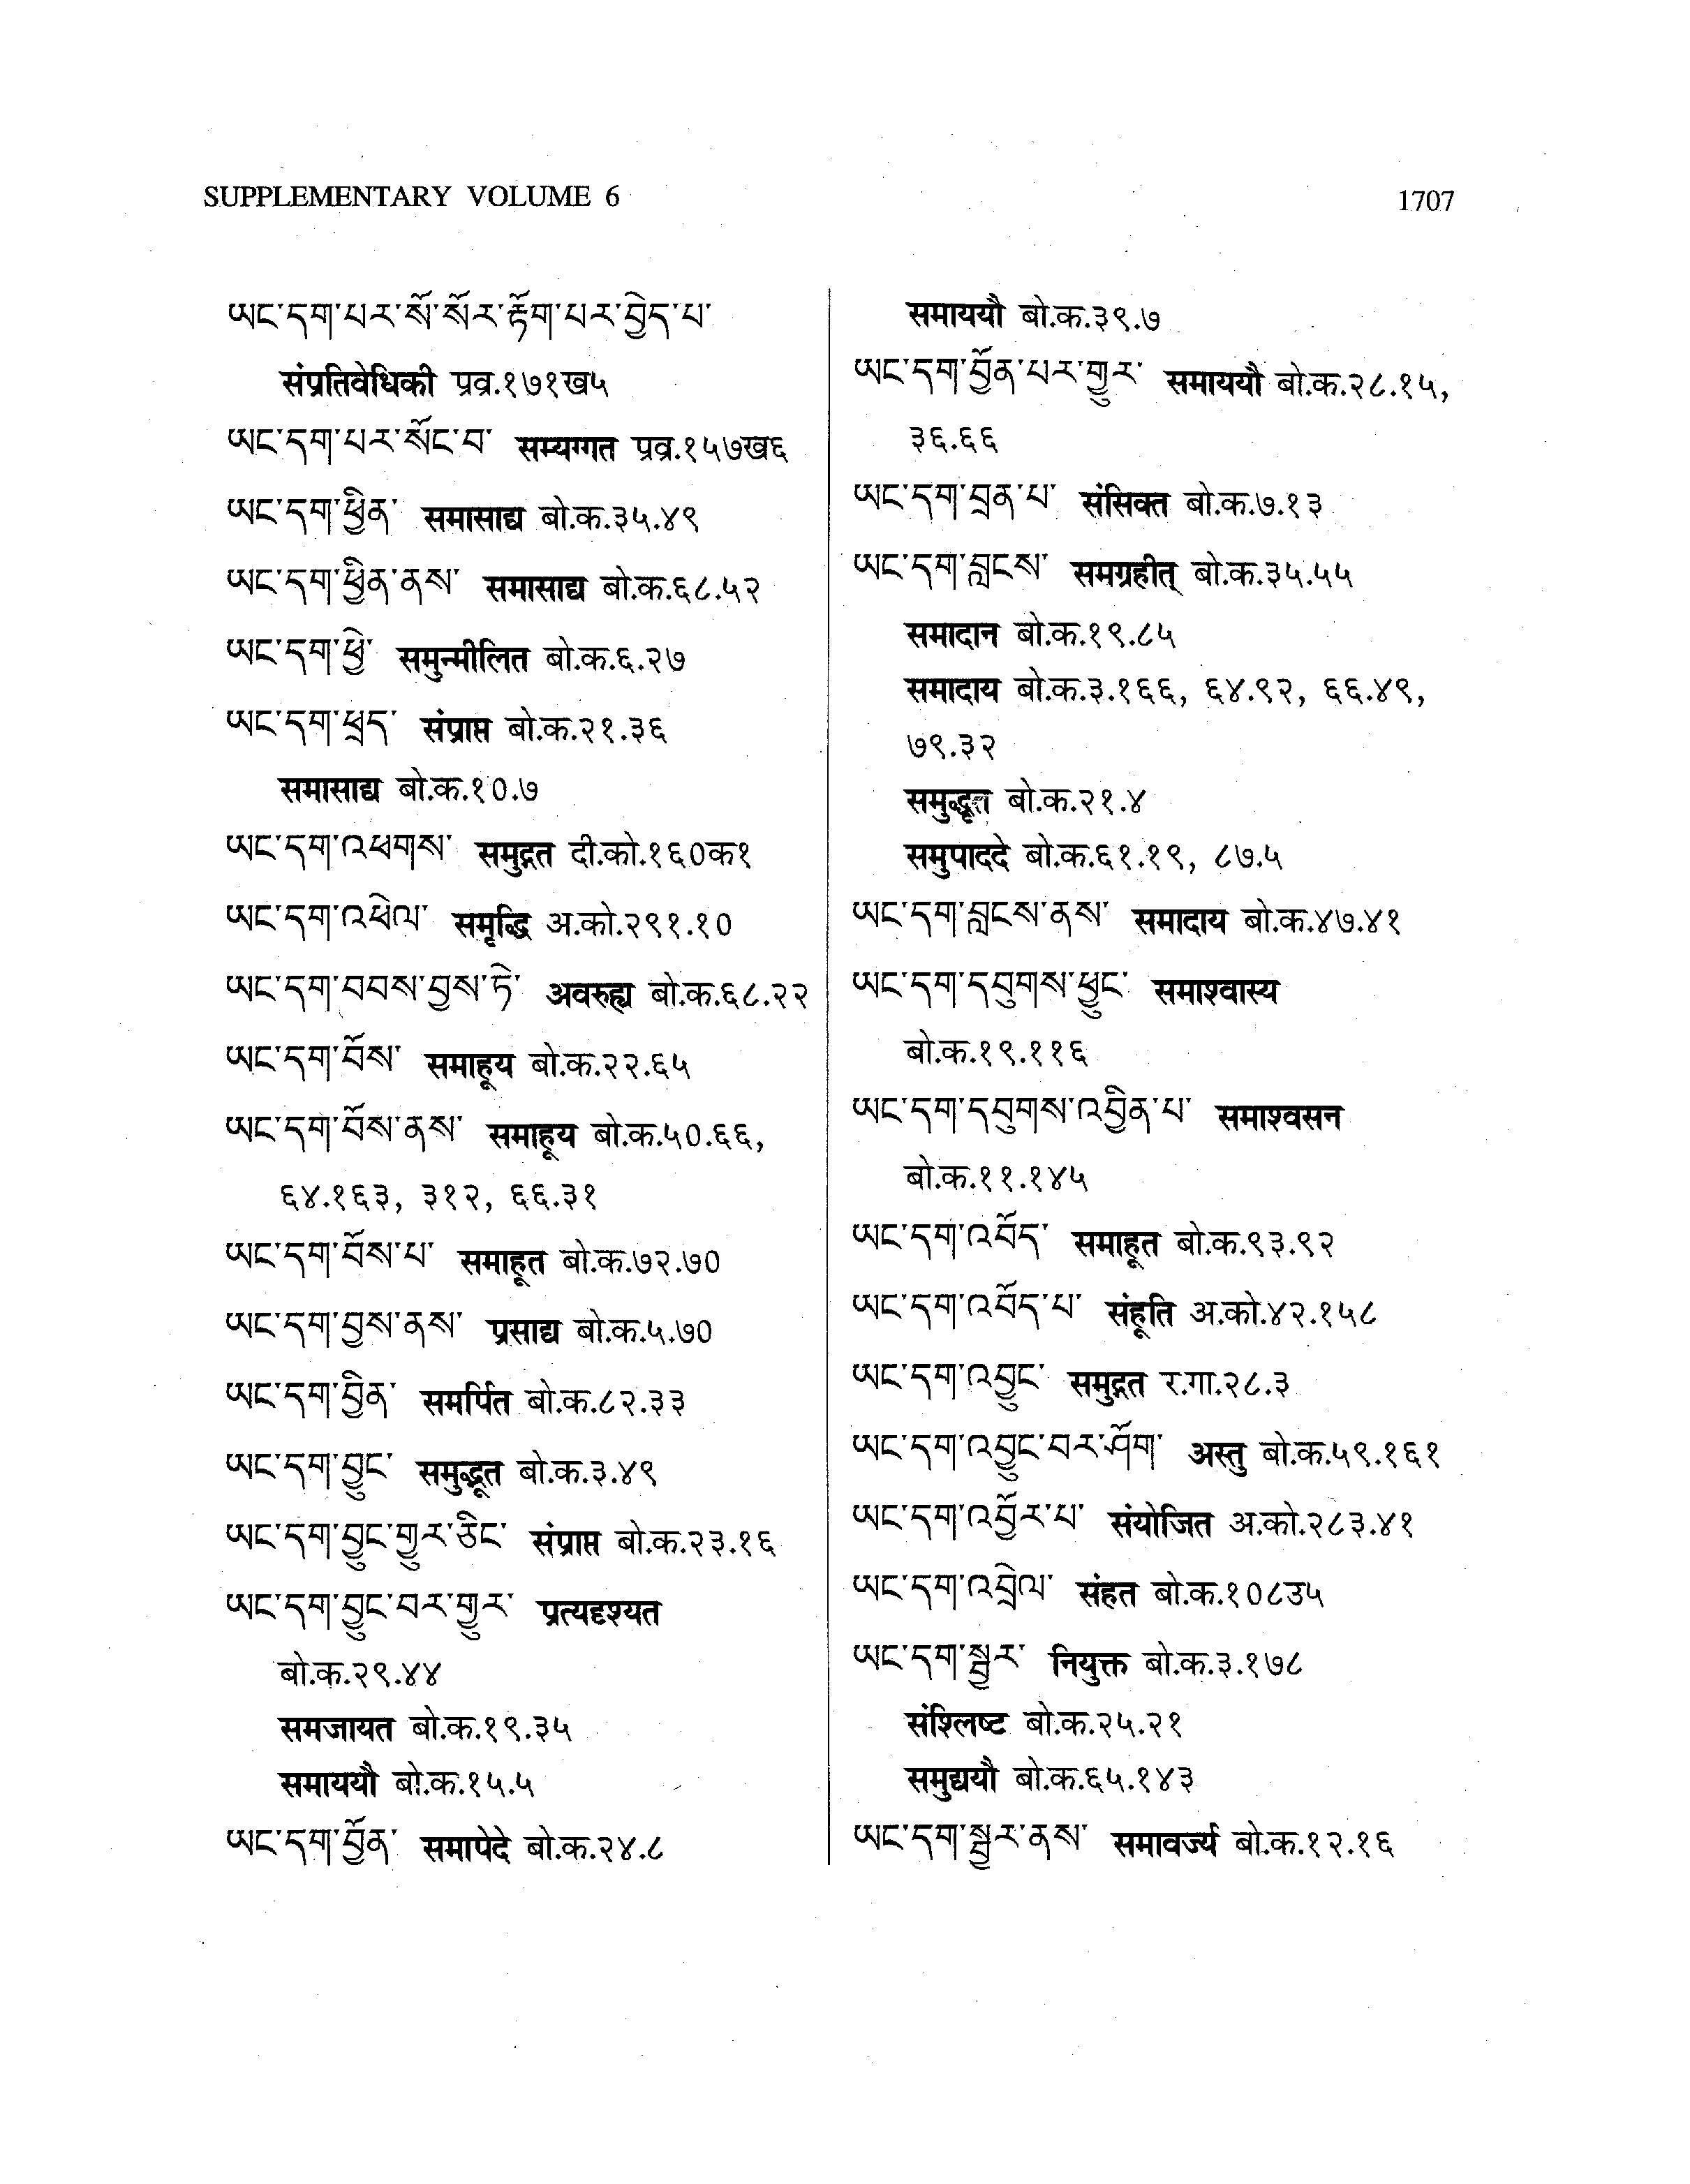 SUPPLEMENTARY VOLUME 6
1707
ཡང་དག་པར་སོ་སོར་རྟོག་པར་བྱེད་པ་
संप्रतिवेधिकी प्रव्र.१७१ख५
ཡང་དག་པར་སོང་བ་ सम्यग्गत प्रव्र.१५७ख६
ཡང་དག་ཕྱིན་ समासाद्य बो.क.३५.४९
ཡང་དག་ཕྱིན་ནས་ समासाद्य बो.क.६८.५२
ཡང་དག་ཕྱེ་ समुन्मीलित बो.क.६.२७
ཡང་དག་ཕྲད་ संप्राप्त बो.क.२१.३६
समासाद्य बो.क.१०.७
ཡང་དག་འཕགས་ समुद्गत दी.को.१६०क१
ཡང་དག་འཕེལ་ समृद्धि अ.को.२९१.१०
ཡང་དག་བབས་བྱས་ཏེ་ अवरुह्य बो.क.६८.२२
ཡང་དག་བོས་ समाहूय बो.क.२२.६५
ཡང་དག་བོས་ནས་ समाहूय बो.क.५०.६६,
६४.१६३, ३१२, ६६.३१
ཡང་དག་བོས་པ་ समाहूत बो.क.७२.७०
ཡང་དག་བྱས་ནས་ प्रसाद्य बो.क.५.७०
ཡང་དག་བྱིན་ समर्पित बो.क.८२.३३
ཡང་དག་བྱུང་ समुद्भूत बो.क.३.४९
ཡང་དག་བྱུང་གྱུར་ཅིང་ संप्राप्त बो.क.२३.१६
ཡང་དག་བྱུང་བར་གྱུར་ प्रत्यदृश्यत
बो.क.२९.४४
समजायत बो.क.१९.३५
समाययौ बो.क.१५.५
ཡང་དག་བྱོན་ समापेदे बो.क.२४.८
समाययौ बो.क.३९.७
ཡང་དག་བྱོན་པར་གྱུར་ समाययौ बो.क.२८.१५,
३६.६६
ཡང་དག་བྲན་པ་ संसिक्त बो.क.७.१३
ཡང་དག་བླངས་ समग्रहीत् बो.क.३५.५५
समादान बो.क.१९.८५
समादाय बो.क.३.१६६, ६४.९२, ६६.४९,
७९.३२
समुद्धृत बो.क.२१.४
समुपाददे बो.क.६१.१९, ८७.५
ཡང་དག་བླངས་ནས་ समादाय बो.क.४७.४१
ཡང་དག་དབུགས་ཕྱུང་ समाश्वास्य
बो.क.१९.११६
ཡང་དག་དབུགས་འབྱིན་པ་ समाश्वसन
बो.क.११.१४५
ཡང་དག་འབོད་ समाहूत बो.क.९३.९२
ཡང་དག་འབོད་པ་ संहूति अ.को.४२.१५८
ཡང་དག་འབྱུང་ समुद्गत र.गा.२८.३
ཡང་དག་འབྱུང་བར་ཤོག་ अस्तु बो.क.५९.१६१
ཡང་དག་འབྱོར་པ་ संयोजित अ.को.२८३.४१
ཡང་དག་འབྲེལ་ संहत बो.क.१०८उ५
ཡང་དག་སྦྱར་ नियुक्त बो.क.३.१७८
संश्लिष्ट बो.क.२५.२१
समुद्ययौ बो.क.६५.१४३
ཡང་དག་སྦྱར་ནས་ समावर्ज्य बो.क.१२.१६